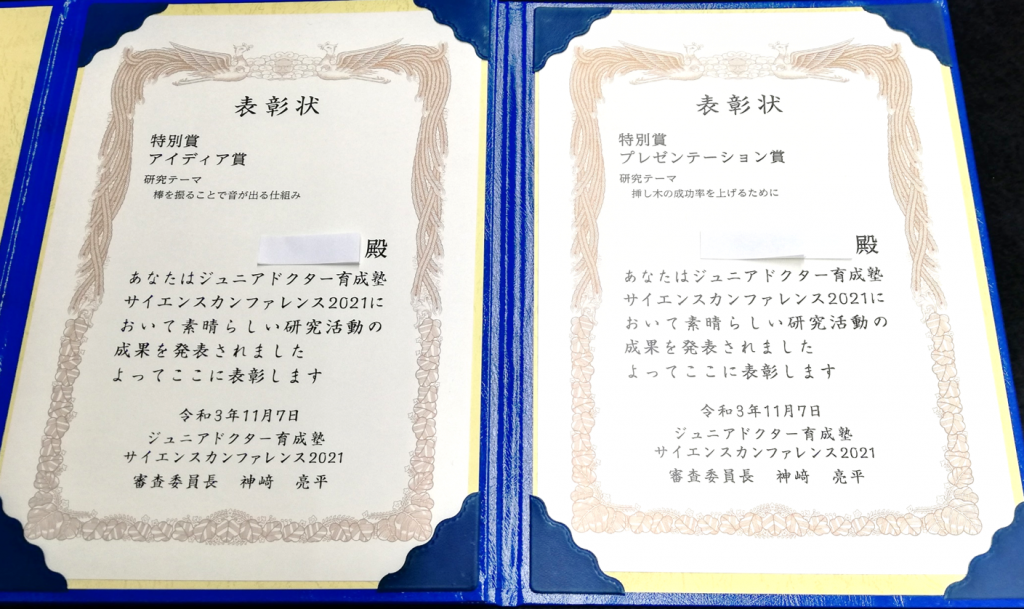 表彰状
特別賞
アイディア賞
研究テーマ
棒を振ることで音が出る仕組み
殿
あなたはジュニアドクター育成塾
サイエンスカンファレンス2021に
おいて素晴らしい研究活動の
成果を発表されました
よってここに表彰します
令和3年11月7日
ジュニアドクター育成塾
サイエンスカンファレンス2021
審査委員長 神﨑 亮平
表彰状
特別賞
プレゼンテーション賞
研究テーマ
挿し木の成功率を上げるために
殿
あなたはジュニアドクター育成塾
サイエンスカンファレンス2021に
おいて素晴らしい研究活動の
成果を発表されました
よってここに表彰します
令和3年11月7日
ジュニアドクター育成塾
サイエンスカンファレンス2021
審査委員長 神﨑 亮平